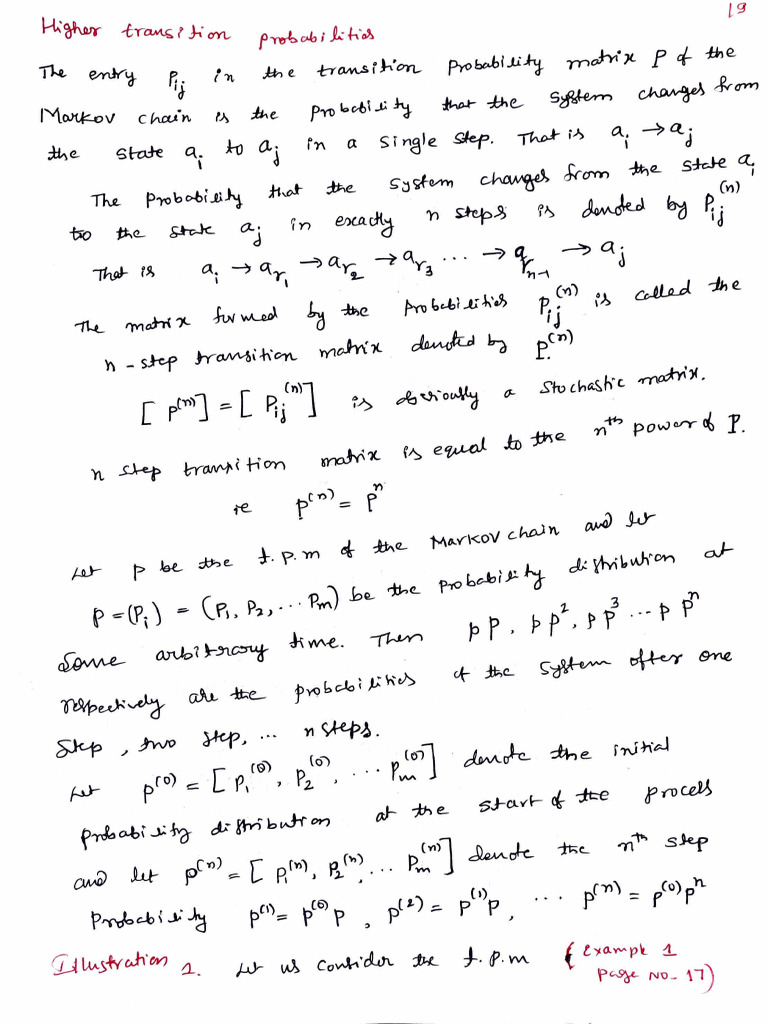 19
Higher transition probabilities
The entry Pij in the transition Probability matrix P of the
Markov chain is the Probability that the system changes from
the state ai to aj in a single step. That is ai → aj
The Probability that the system changes from the state ai
to the state aj in exactly n steps is denoted by Pij(n)
That is ai → ar1 → ar2 → ar3 ... → qrn-1 → aj
The matrix formed by the Probabilities Pij(n) is called the
n - step transition matrix denoted by P(n)
[ P(n) ] = [ Pij(n) ] is obviously a stochastic matrix.
n step transition matrix is equal to the nth power of P.
ie P(n) = Pn
Let P be the t.p.m of the Markov chain and let
P = (Pi) = (P1, P2, ... Pm) be the Probability distribution at
Some arbitrary time. Then pP, pP2, pP3 ... p Pn
respectively are the probabilities of the system after one
Step, two step, ... n steps.
Let p(0) = [ P1(0), P2(0), ... Pm(0) ] denote the initial
Probability distribution at the start of the process
and let p(n) = [ P1(n), P2(n), ... Pm(n) ] denote the nth step
Probability p(1) = p(0)p, p(2) = p(1)p, ... p(n) = p(0)pn
Illustration 1. Let us consider the t.p.m (Example 1
Page No- 17)